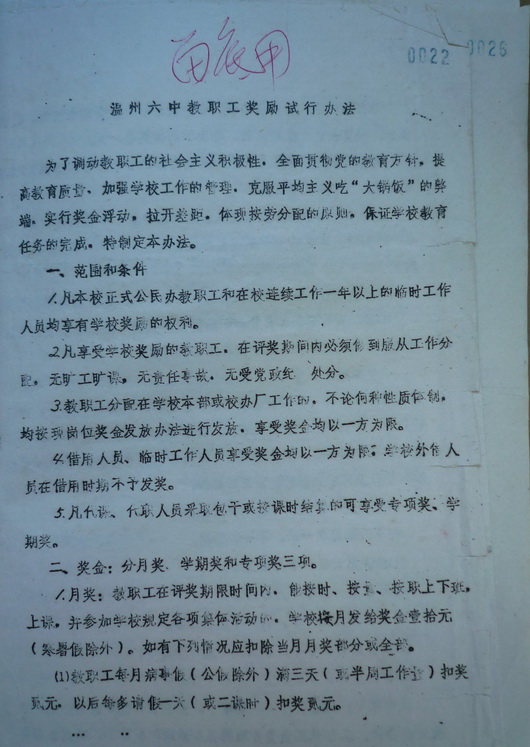 留底用
0022 0026
温州六中教职工奖励试行办法
为了调动教职工的社会主义积极性，全面贯彻党的教育方针，提
高教育质量，加强学校工作的管理，克服平均主义吃“大锅饭”的弊
端，实行奖金浮动，拉开差距，体现按劳分配的原则，保证学校教育
任务的完成，特制定本办法。
一、范围和条件
1.凡本校正式公民办教职工和在校连续工作一年以上的临时工作
人员均享有学校奖励的权利。
2.凡享受学校奖励的教职工，在评奖期间内必须做到服从工作分
配，无旷工旷课，无责任事故，无受党政纪 处分。
3.教职工分配在学校本部或校办厂工作的，不论何种性质体制，
均按现岗位奖金发放办法进行发放，享受奖金均以一方为限。
4.借用人员、临时工作人员享受奖金均以一方为限；学校外借人
员在借用时期不予发奖。
5.凡代课、代职人员采取包干或按课时结算的可享受专项奖、学
期奖。
二、奖金：分月奖、学期奖和专项奖三项。
1.月奖：教职工在评奖期限时间内，能按时、按量、按职上下班，
上课，并参加学校规定各项集体活动的，学校按月发给奖金壹拾元
（寒暑假除外）。如有下列情况应扣除当月月奖部分或全部。
(1)教职工每月病事假（公假除外）满三天（或半周工作量）扣奖
贰元，以后每多请假一天（或二课时）扣奖贰元。
… …